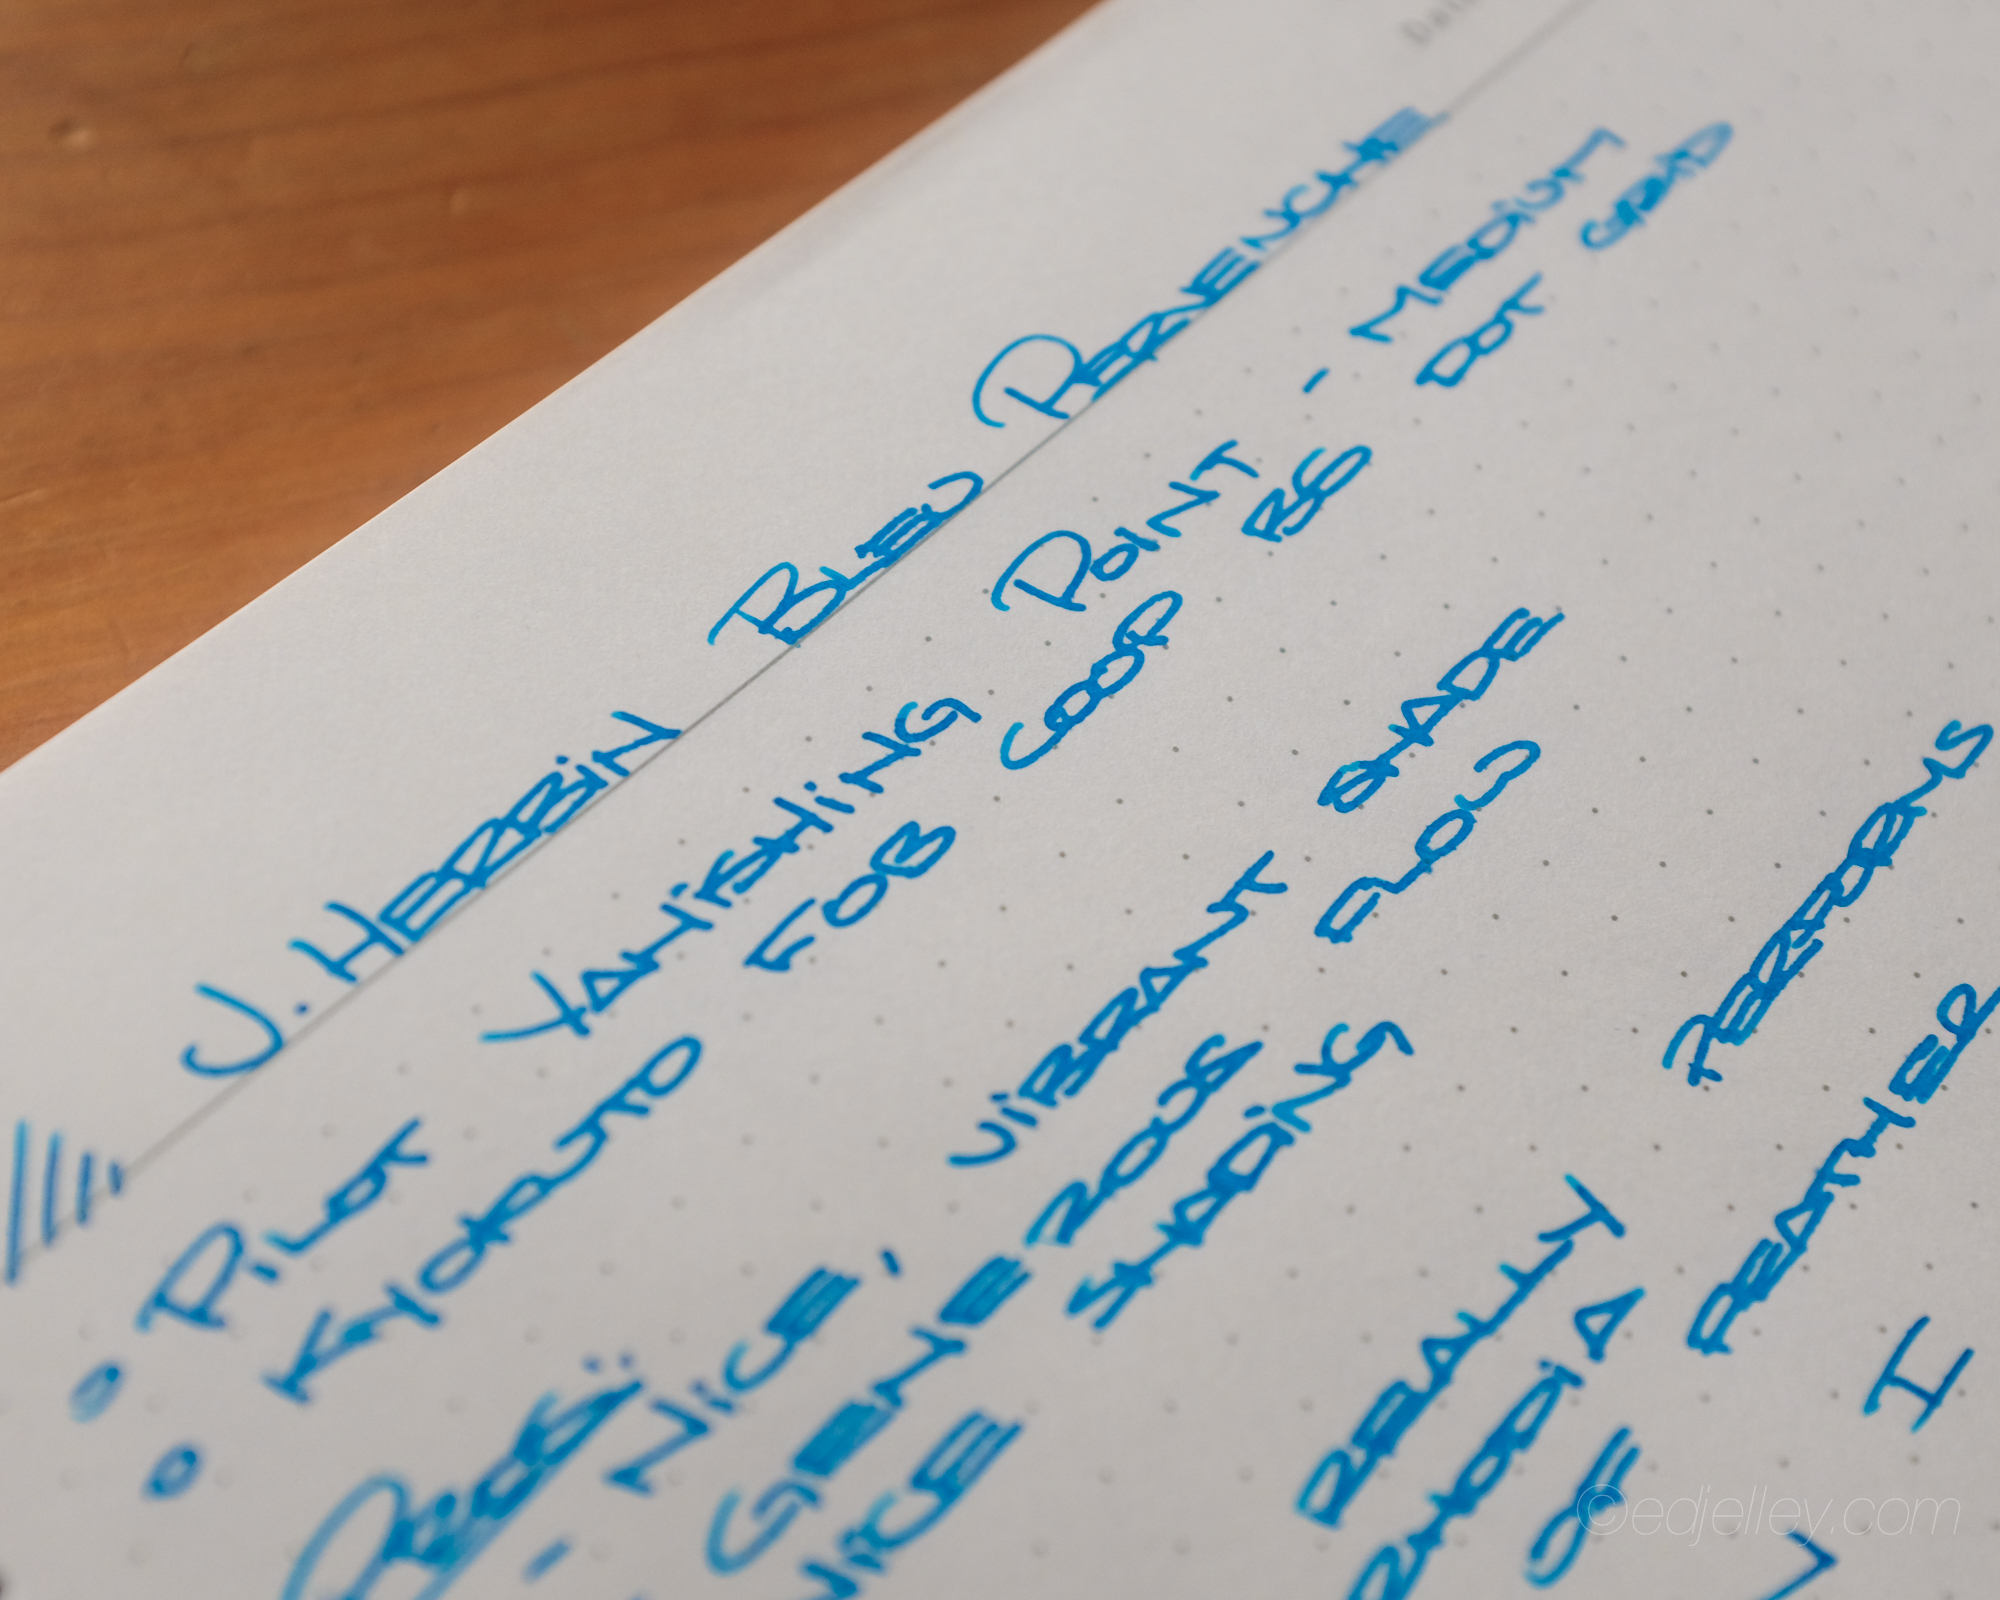 J. HERBIN BLEU PERVENCHE
PILOT VANISHING POINT - MEDIUM
KYOKUTO FOB COOP B5 DOT GRID
PROS:
- NICE, VIBRANT SHADE
GENEROUS FLOW
NICE SHADING
REALLY PERFORMS
RHODIA A
OF FEATHER
I
©edjelley.com